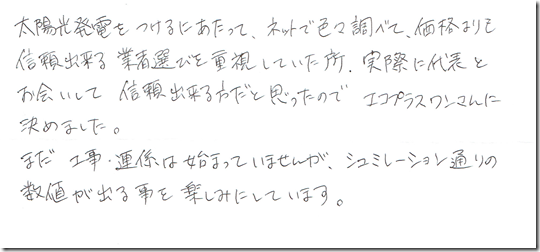 太陽光発電をつけるにあたって、ネットで色々調べて、価格よりも
信頼出来る業者選びを重視していた所、実際に代表と
お会いして信頼出来る方だと思ったのでエコプラスワンさんに
決めました。
まだ工事・連係は始まっていませんが、シュミレーション通りの
数値が出る事を楽しみにしています。